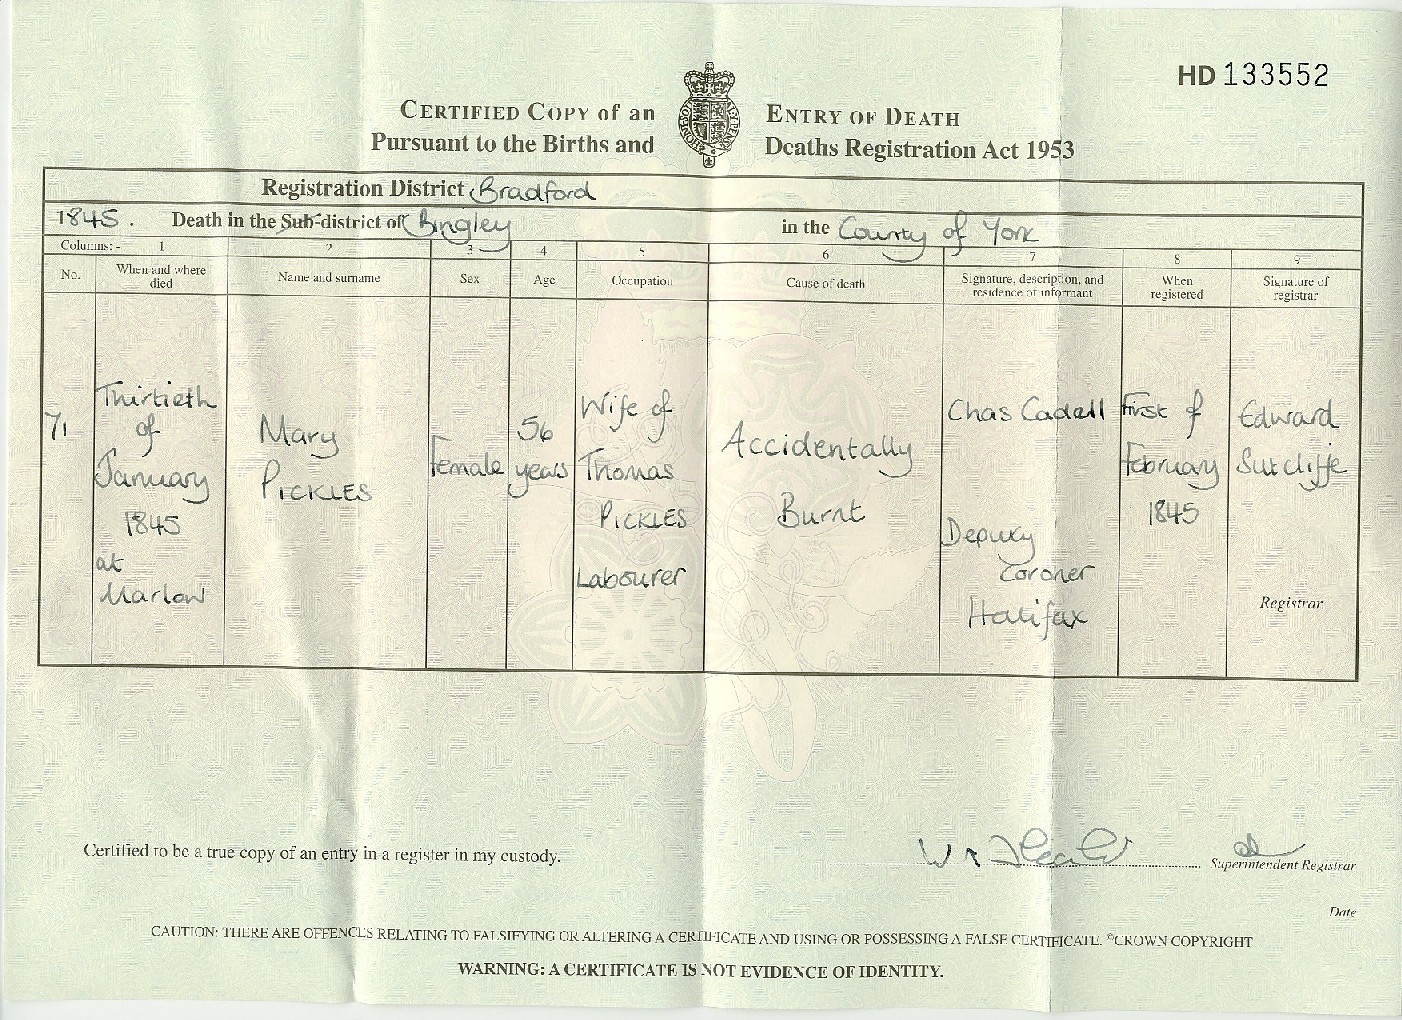 HD 133552
CERTIFIED COPY of an ENTRY OF DEATH
Pursuant to the Births and Deaths Registration Act 1953
Registration District Bradford
1845. Death in the Sub-district of Bingley in the County of York
Columns:- 1 2 3 4 5 6 7 8 9
No. When and where died Name and surname Sex Age Occupation Cause of death Signature, description, and residence of informant When registered Signature of registrar
71
Thirtieth
of
January
1845
at
Marlow
Mary
PICKLES
Female
56
years
Wife of
Thomas
PICKLES
Labourer
Accidentally
Burnt
Chas Cadell
Deputy
Coroner
Halifax
First of
February
1845
Edward
Sutcliffe
Registrar
Certified to be a true copy of an entry in a register in my custody.
Superintendent Registrar
Date
CAUTION: THERE ARE OFFENCES RELATING TO FALSIFYING OR ALTERING A CERTIFICATE AND USING OR POSSESSING A FALSE CERTIFICATE. ©CROWN COPYRIGHT
WARNING: A CERTIFICATE IS NOT EVIDENCE OF IDENTITY.